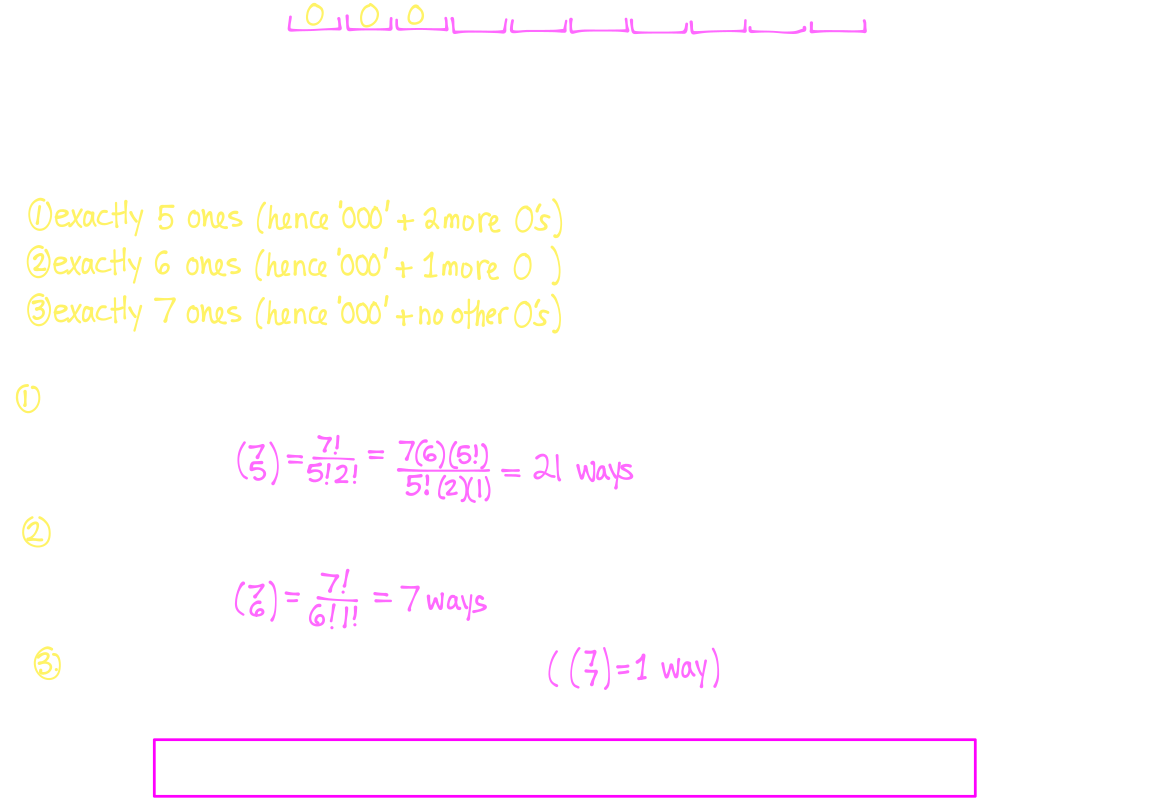 0 0 0
① exactly 5 ones (hence '000' + 2 more 0's)
② exactly 6 ones (hence '000' + 1 more 0 )
③ exactly 7 ones (hence '000' + no other 0's)
①
(7 5) = 7!/5!2! = 7(6)(5!)/5!(2)(1) = 21 ways
②
(7 6) = 7!/6!1! = 7 ways
③. ( (7 7) = 1 way)